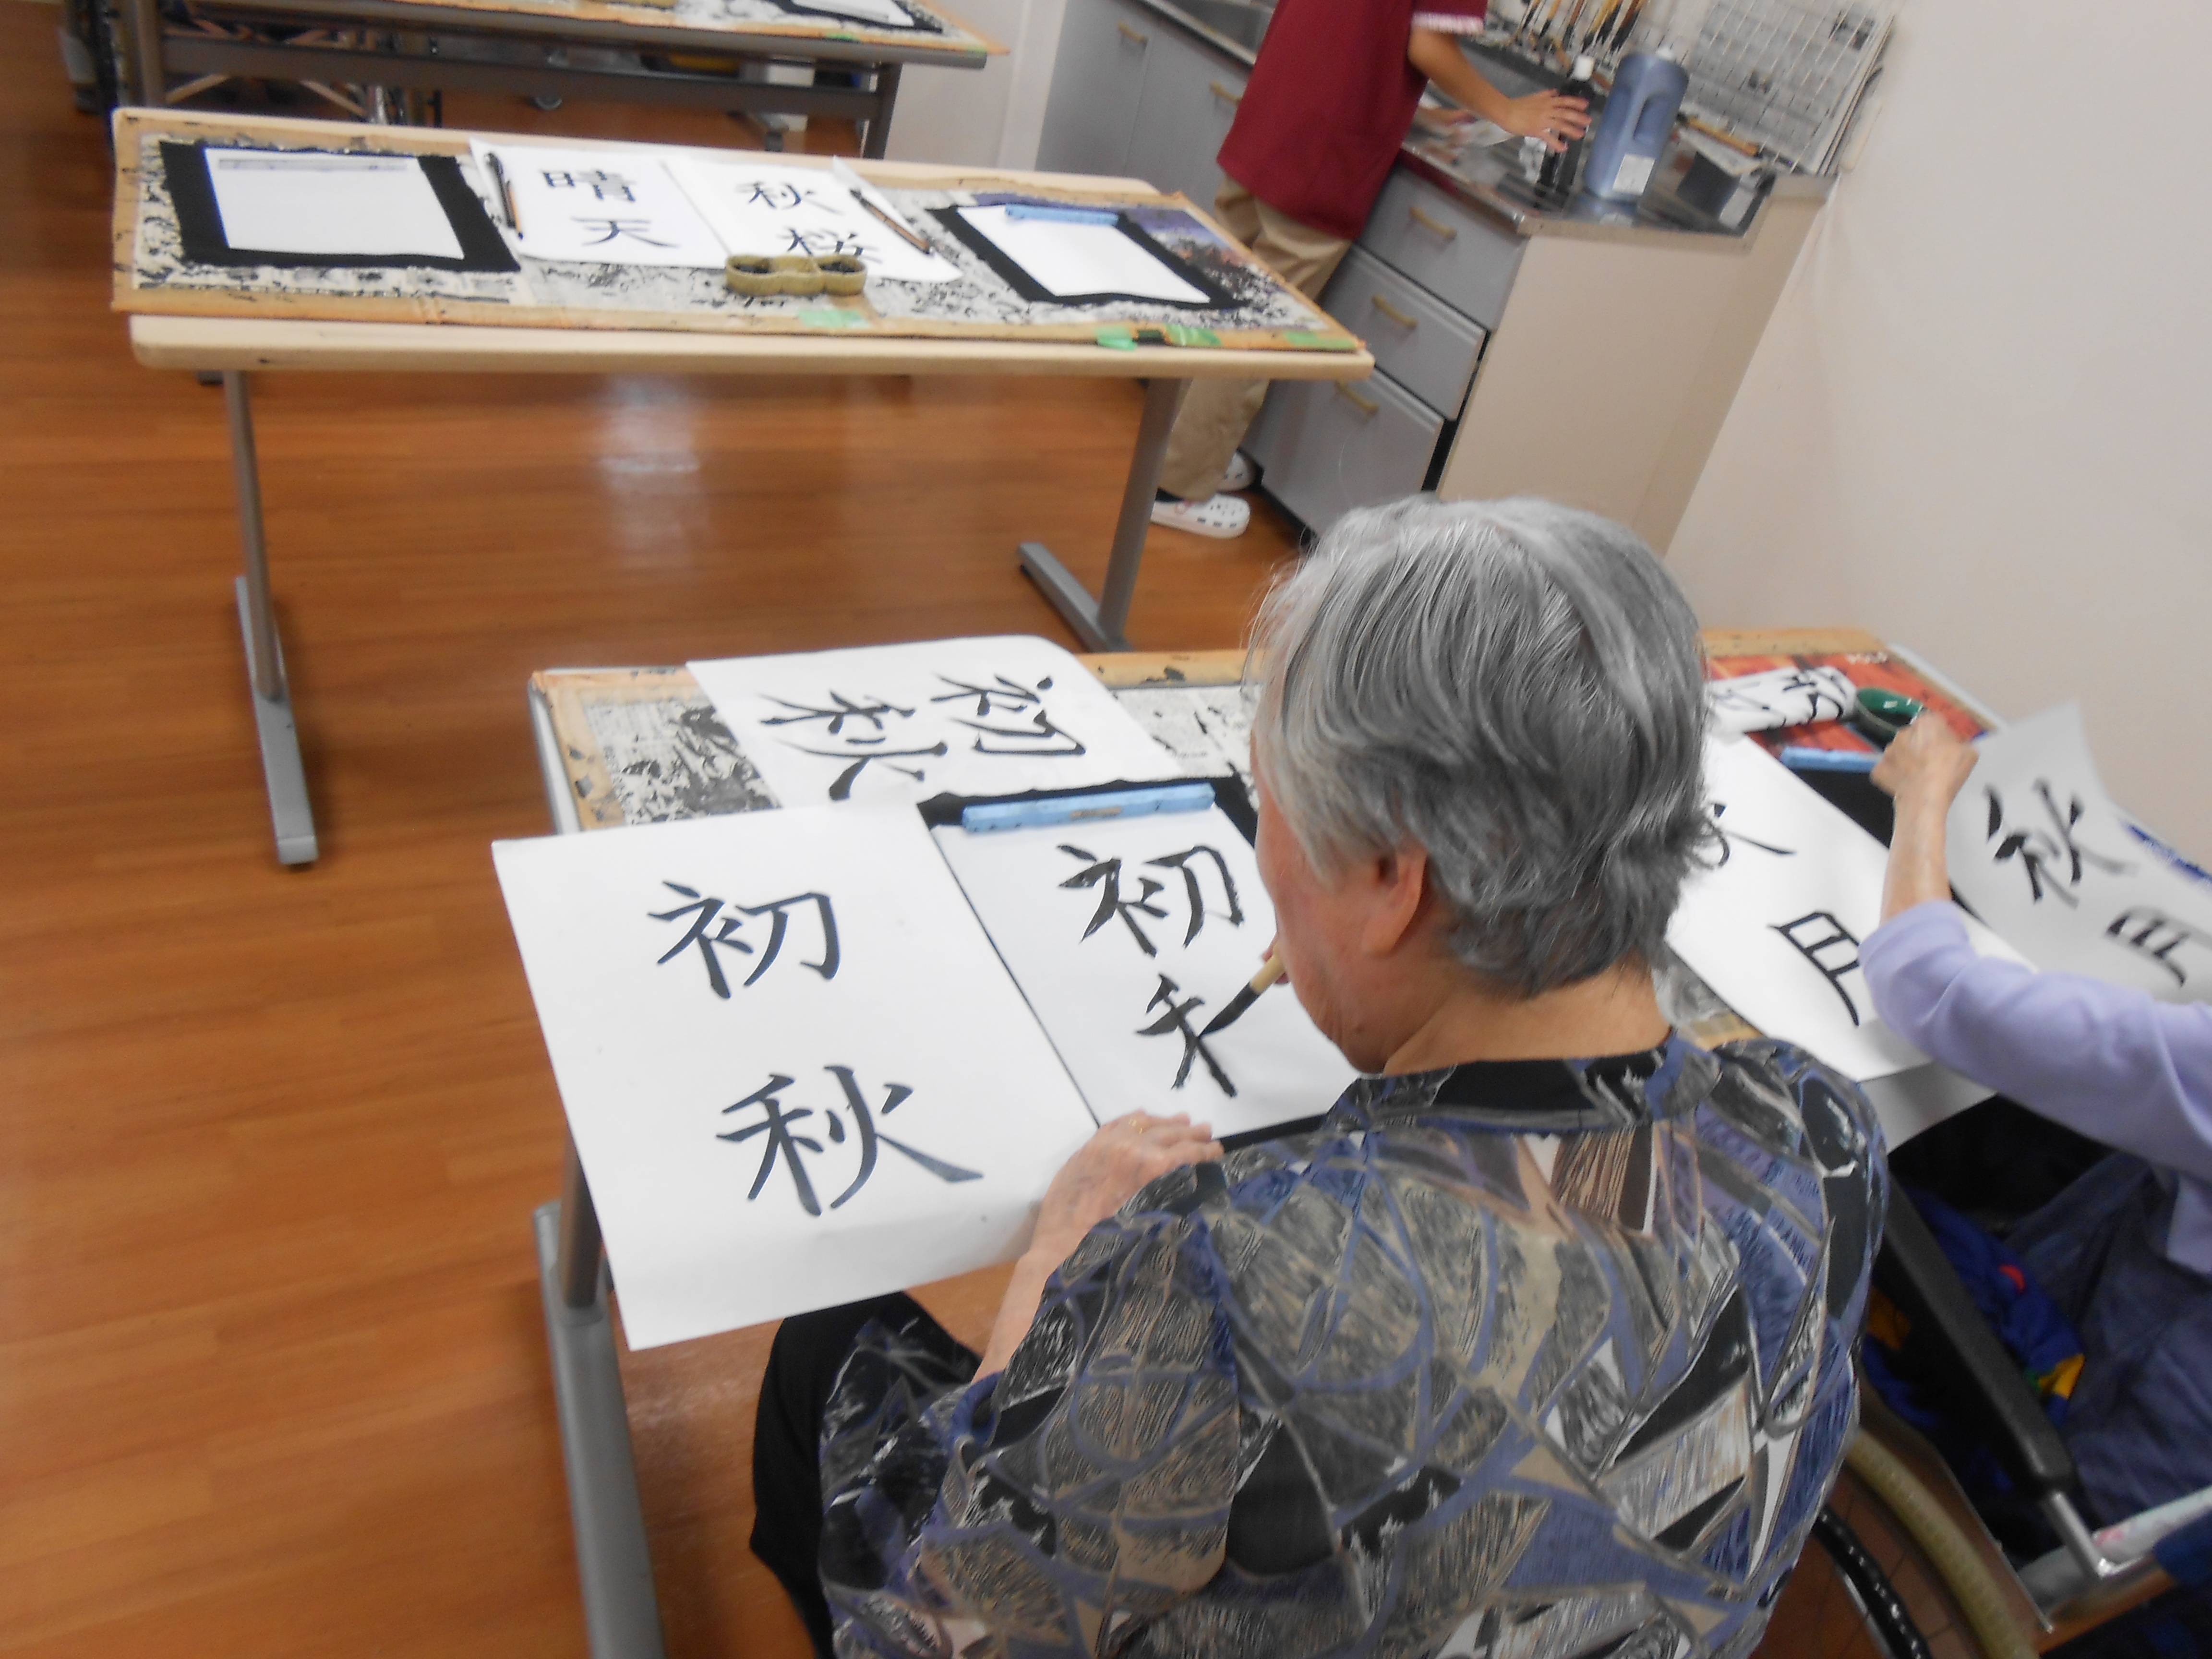 晴天
秋桜
初秋
初秋
初禾
秋月
月